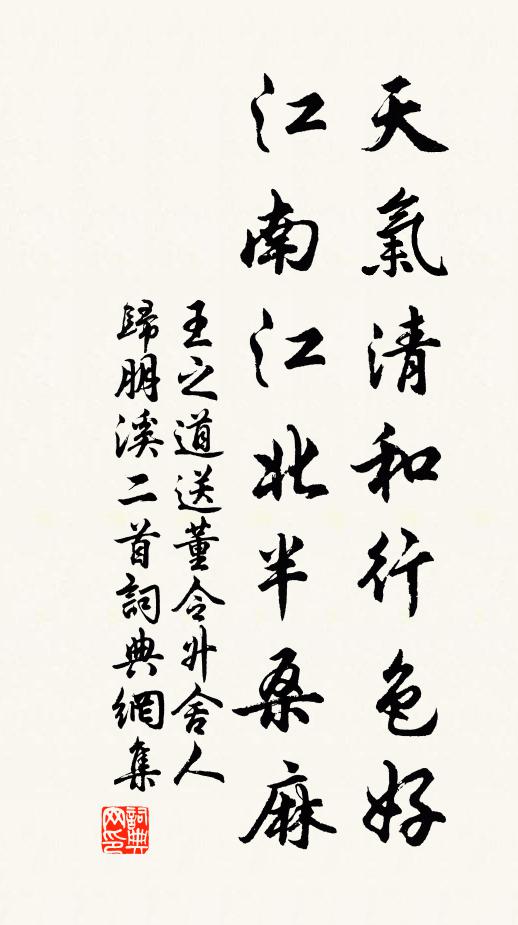 天氣清和行色好
江南江北半桑麻
王之道送董令升舍人
歸朋溪二首詞典網集
詞典网印